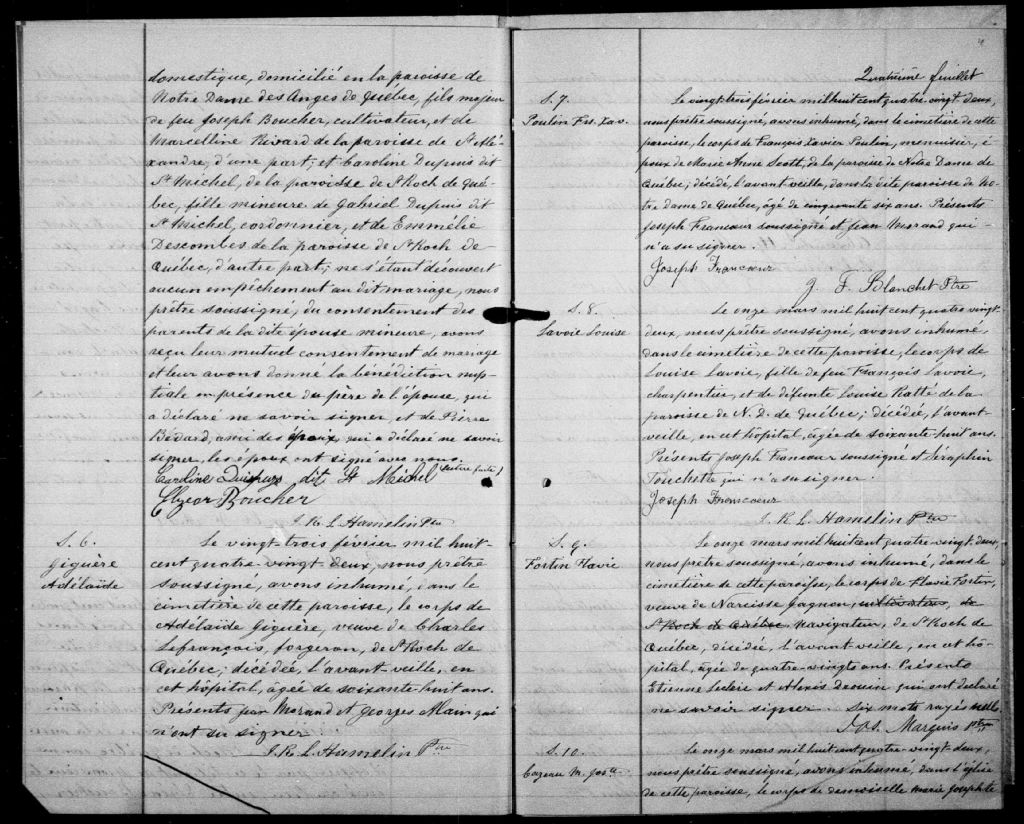 domestique, domicilié en la paroisse de
Notre Dame des Anges de Québec, fils majeur
de feu Joseph Boucher, cultivateur, et de
Marcelline Rivard de la paroisse de St Alé-
xandre, d'une part; et Caroline Dupuis dit
St Michel, de la paroisse de St Roch de Qué-
bec, fille mineure de Gabriel Dupuis dit
St Michel, cordonnier, et de Emmélie
Descombes de la paroisse de St Roch de
Québec, d'autre part; ne s'étant découvert
aucun empêchement au dit mariage, nous
prêtre soussigné, du consentement des
parents de la dite épouse mineure, avons
reçu leur mutuel consentement de mariage
et leur avons donné la bénédiction nup-
tiale en présence du père de l'épouse, qui
a déclaré ne savoir signer, et de Pierre
Bédard, ami des époux qui a déclaré ne savoir
signer, les époux ont signé avec nous.
Caroline Dupuis dit St Michel
Elzear Boucher
J. R. L. Hamelin Ptre
S. 6.
Giguère
Adélaïde
Le vingt trois février mil huit-
cent quatre-vingt deux, nous prêtre
soussigné, avons inhumé, dans le
cimetière de cette paroisse, le corps de
Adélaïde Giguère, veuve de Charles
Lefrançois, forgeron, de St Roch de
Québec, décédée, l'avant-veille, en
cet hôpital, âgée de soixante-huit ans.
Présents Morand et Georges Alain qui
n'ont su signer
J. R. L. Hamelin Ptre
Quatrième feuillet
S. 7.
Poulin Frs. Xav.
Le vingt trois février mil huit cent quatre-vingt deux,
nous prêtre soussigné, avons inhumé, dans le cimetière de cette
paroisse, le corps de François Xavier Poulin, menuisier, é-
poux de Marie Anne Scott, de la paroisse de Notre Dame de
Québec; décédé, l'avant veille, dans la dite paroisse de No-
tre dame de Québec, âgé de cinquante six ans. Présents
Joseph Francoeur soussigné et Jean Morand qui
n'a su signer.
Joseph Francoeur
J. F. Blanchet Ptre
S. 8.
Lavoie Louise
Le onze mars mil huit cent quatre vingt
deux, nous prêtre soussigné, avons inhumé,
dans le cimetière de cette paroisse, le corps de
Louise Lavoie, fille de feu François Lavoie,
charpentier, et de défunte Louise Ratté de la
paroisse de N. D. de Québec; décédée, l'avant-
veille, en cet hôpital, âgée de soixante-huit ans.
Présents Joseph Francoeur soussigné et Séraphin
Touchette qui n'a su signer.
Joseph Francoeur
J. R. L. Hamelin Ptre
S. 9.
Fortin Flavie
Le onze mars mil huit cent quatre-vingt deux,
nous prêtre soussigné, avons inhumé, dans le
cimetière de cette paroisse, le corps de Flavie Fortin,
veuve de Narcisse Gagnon, cultivateur, de
St Roch de Québec navigateur, de St Roch de
Québec, décédée, l'avant veille, en cet hô-
pital, âgée de quatre-vingts ans. Présents
Etienne Leclerc et Alexis Drouin qui ont déclaré
ne savoir signer Six mots rayés nuls
Jos. Marquis ptre
S. 10.
Cazeau M. Joste
Le onze mars mil huit cent quatre-vingt deux,
nous prêtre soussigné, avons inhumé, dans l'église
de cette paroisse, le corps de demoiselle Marie Josephte